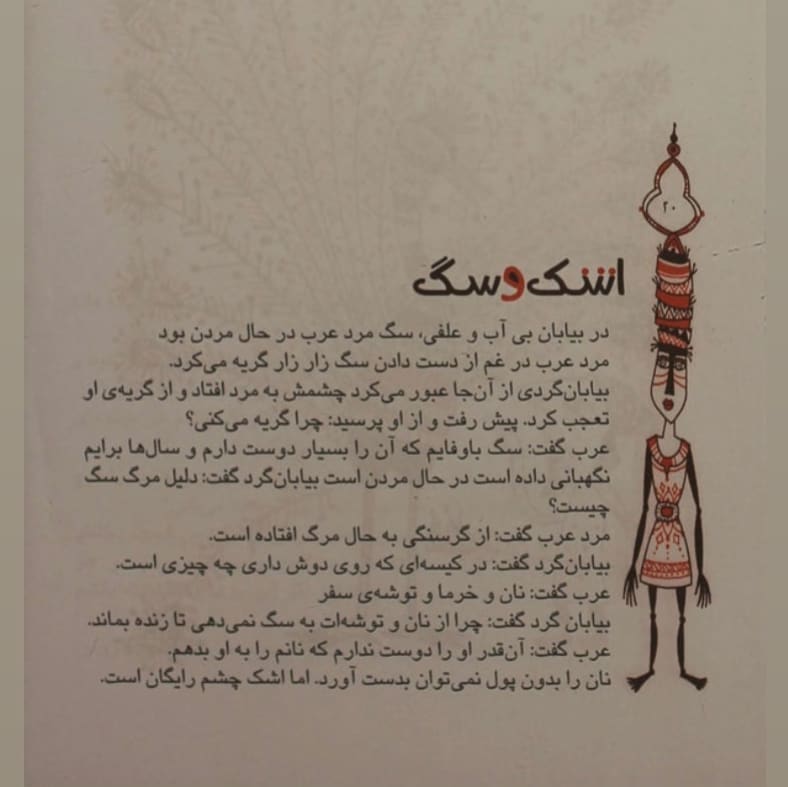 ۲۰
اشک و سگ
در بیابان بی آب و علفی، سگ مرد عرب در حال مردن بود
مرد عرب در غم از دست دادن سگ زار زار گریه می‌کرد.
بیابان‌گردی از آن‌جا عبور می‌کرد چشمش به مرد افتاد و از گریه‌ی او
تعجب کرد. پیش رفت و از او پرسید: چرا گریه می‌کنی؟
عرب گفت: سگ باوفایم که آن را بسیار دوست دارم و سال‌ها برایم
نگهبانی داده است در حال مردن است بیابان‌گرد گفت: دلیل مرگ سگ
چیست؟
مرد عرب گفت: از گرسنگی به حال مرگ افتاده است.
بیابان‌گرد گفت: در کیسه‌ای که روی دوش داری چه چیزی است.
عرب گفت: نان و خرما و توشه‌ی سفر
بیابان گرد گفت: چرا از نان و توشه‌ات به سگ نمی‌دهی تا زنده بماند.
عرب گفت: آن‌قدر او را دوست ندارم که نانم را به او بدهم.
نان را بدون پول نمی‌توان بدست آورد. اما اشک چشم رایگان است.